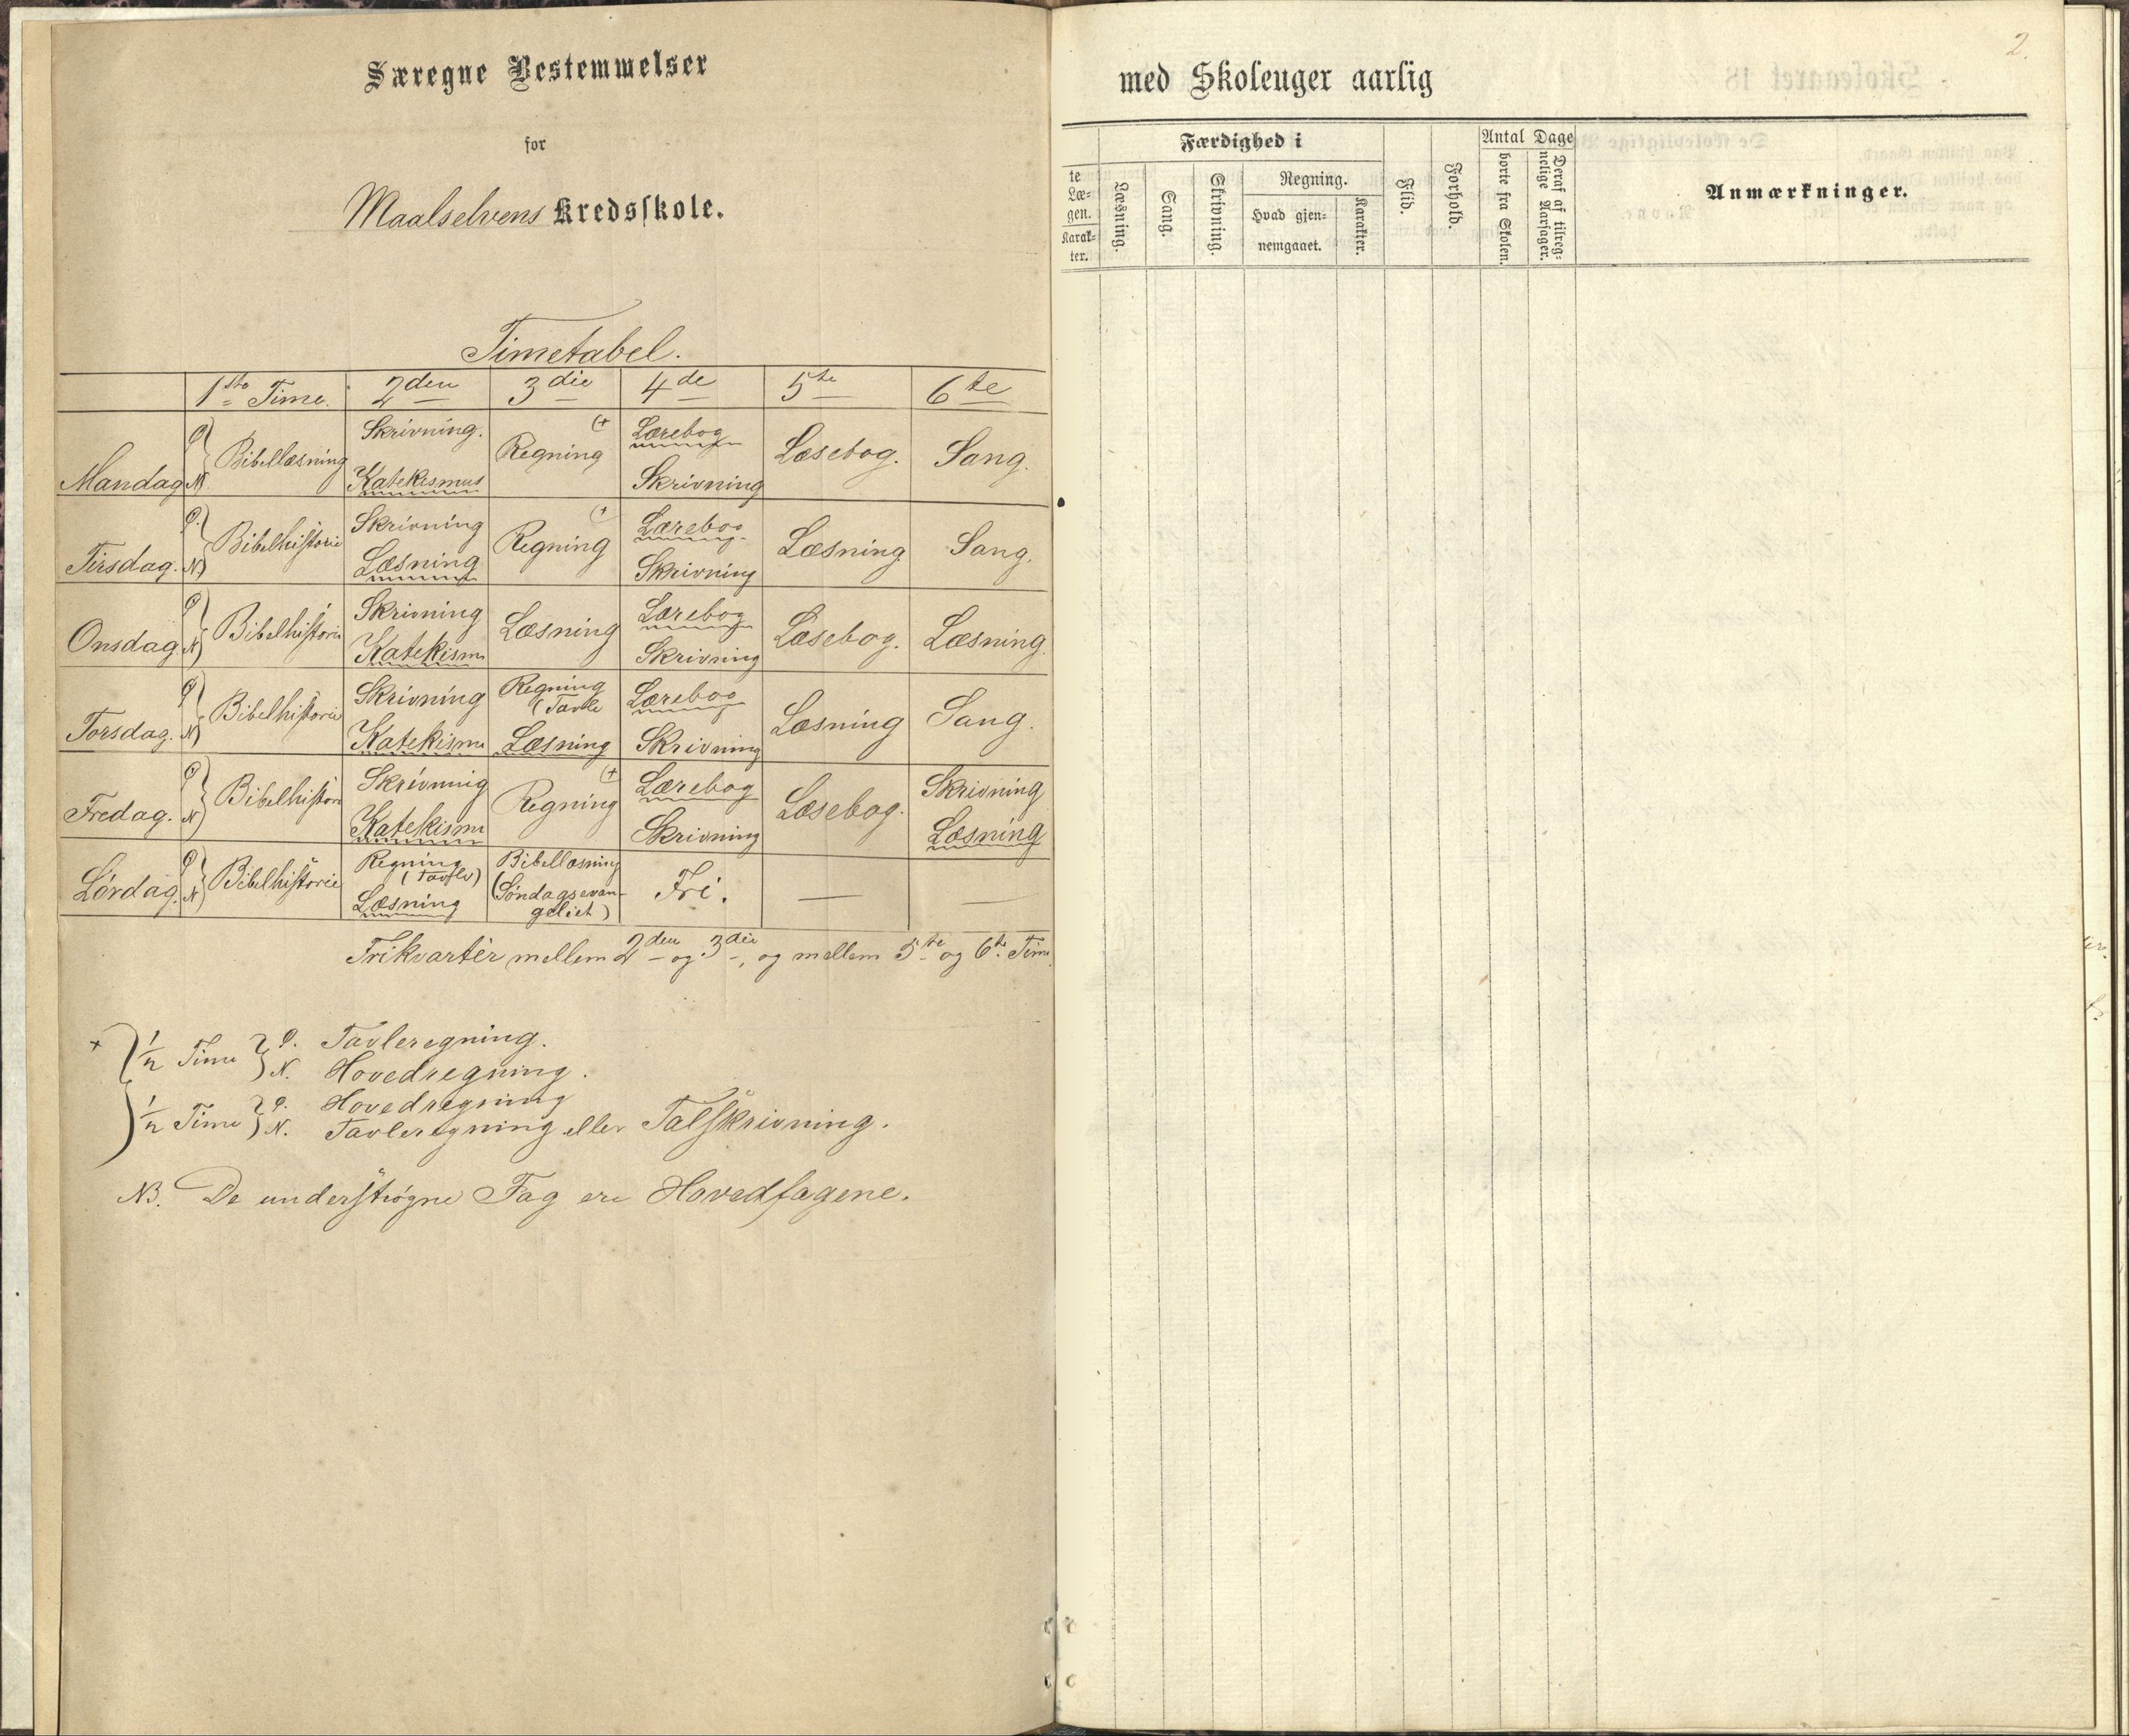 Særegne Bestemmelser
for
Maalselvens Kredsskole.
Timetabel.
1ste Time. 2den 3die 4de 5te 6te
Mandag Ø N Bibellæsning Skrivning. Katekismus Regning (+ Lærebog Skrivning Læsebog. Sang.
Tirsdag. Ø. N Bibelhistorie Skrivning Læsning Regning (+ Lærebog Skrivning Læsning Sang.
Onsdag. Ø N Bibelhistorie Skrivning Katekisme Læsning Lærebog Skrivning Læsebog. Læsning
Torsdag. Ø N Bibelhistorie Skrivning Katekisme Regning (Tavle Læsning Lærebog Skrivning Læsning Sang.
Fredag. Ø N Bibelhistori Skrivning Katekisme Regning (+ Lærebog Skrivning Læsebog. Skrivning Læsning
Lørdag. Ø N Bibelhistorie Regning (Tavle) Læsning Bibellæsning (Søndagsevangeliet) Fri. — —
Frikvartér mellem 2den og 3die, og mellem 5te og 6te Time
+ ½ Time Ø. Tavleregning.
N. Hovedregning.
½ Time Ø. Hovedregning
N. Tavleregning eller Talskrivning.
NB. De understrøgne Fag ere Hovedfagene.
2.
med Skoleuger aarlig
te Læ-
gen.
Karak-
ter.
Færdighed i
Læsning.
Sang.
Skrivning.
Regning.
Hvad gjen-
nemgaaet.
Karakter.
Flid.
Forhold.
Antal Dage
borte fra Skolen.
Deraf af tilreg-
nelige Aarsager.
Anmærkninger.